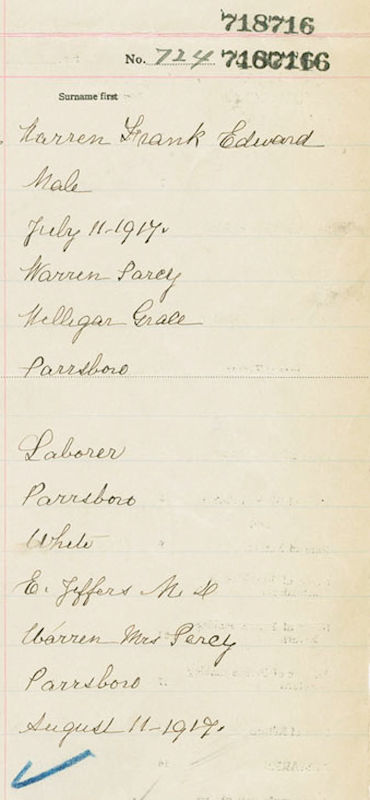 718716
No. 724 7187166
Surname first
Warren Frank Edward
Male
July 11-1917.
Warren Percy
Welligar Grace
Parrsboro
Laborer
Parrsboro
White
E. Jeffers M.D
Warren Mrs Percy
Parrsboro
August 11-1917.